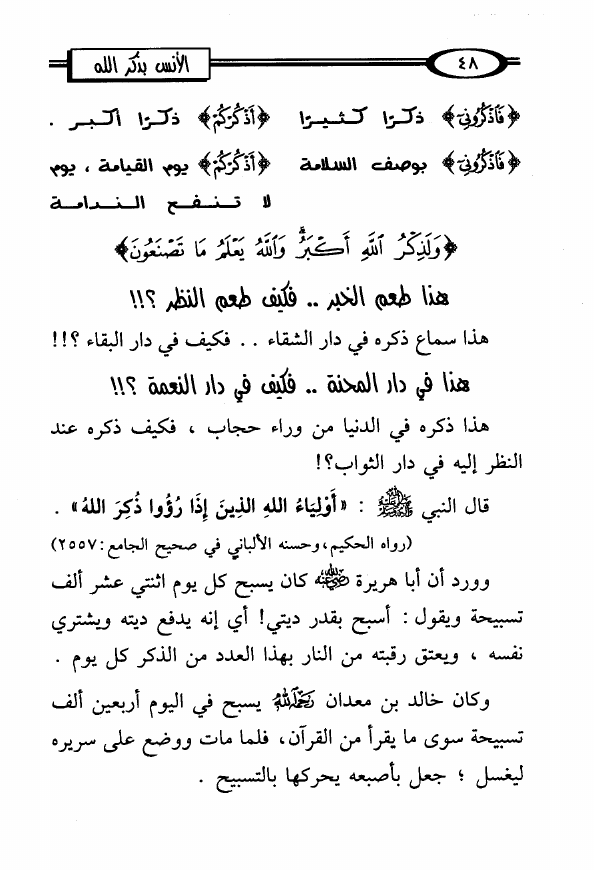 ٤٨
الأنس بذكر الله
﴿فَاذْكُرُونِي﴾ ذكرًا كثيرًا ﴿أَذْكُرْكُمْ﴾ ذكرًا أكبر .
﴿فَاذْكُرُونِي﴾ بوصف السلامة ﴿أَذْكُرْكُمْ﴾ يوم القيامة ، يوم
لا تنفع الندامة
﴿وَلَذِكْرُ اللَّهِ أَكْبَرُ وَاللَّهُ يَعْلَمُ مَا تَصْنَعُونَ﴾
هذا طعم الخبر .. فكيف طعم النظر ؟!!
هذا سماع ذكره في دار الشقاء .. فكيف في دار البقاء ؟!!
هذا في دار المحنة .. فكيف في دار النعمة ؟!!
هذا ذكره في الدنيا من وراء حجاب ، فكيف ذكره عند
النظر إليه في دار الثواب؟!
قال النبي ﷺ : «أَوْلِيَاءُ اللهِ الذِينَ إِذَا رُؤُوا ذُكِرَ اللهُ» .
(رواه الحكيم، وحسنه الألباني في صحيح الجامع: ٢٥٥٧)
وورد أن أبا هريرة رضي الله عنه كان يسبح كل يوم اثنتي عشر ألف
تسبيحة ويقول : أسبح بقدر ديتي! أي إنه يدفع ديته ويشتري
نفسه ، ويعتق رقبته من النار بهذا العدد من الذكر كل يوم .
وكان خالد بن معدان رحمه الله يسبح في اليوم أربعين ألف
تسبيحة سوى ما يقرأ من القرآن، فلما مات ووضع على سريره
ليغسل ؛ جعل بأصبعه يحركها بالتسبيح .